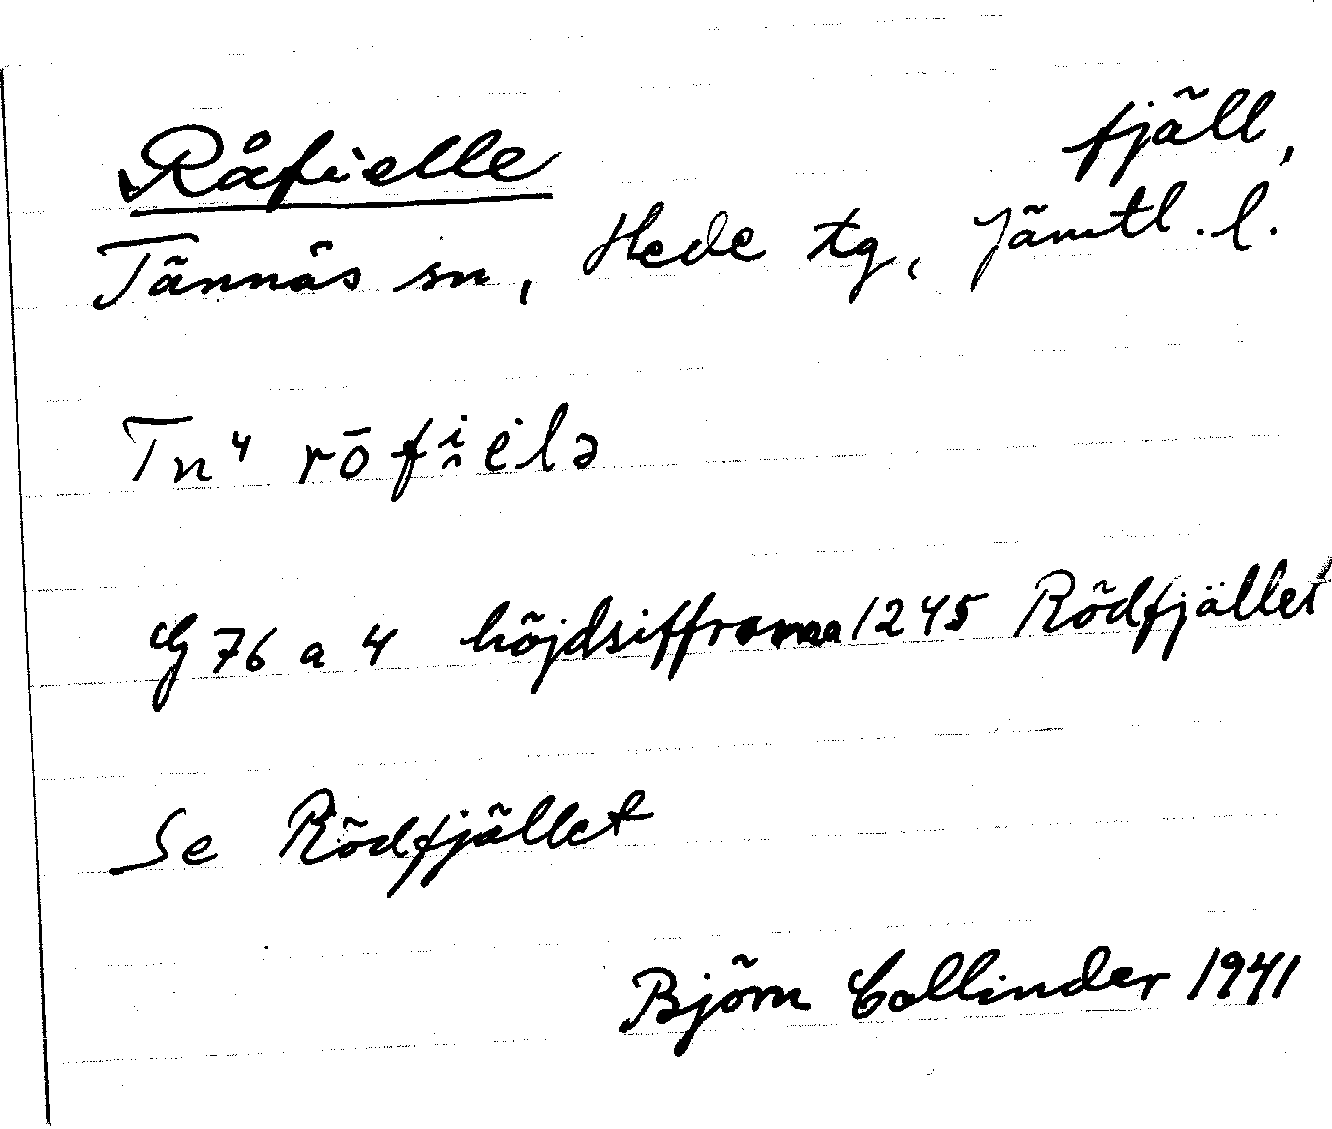 Råfielle fjäll,
Tännäs sn, Hede tg, Jämtl. l.
Tn⁴ rōfi̯elə
G 76 a 4 höjdsiffrorna 1245 Rödfjället
Se Rödfjället
Björn Collinder 1941